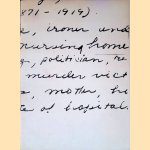 871-1919).
, ironer and
nursing home
, politician, re
murder vict
, mother, tr
e of hospital